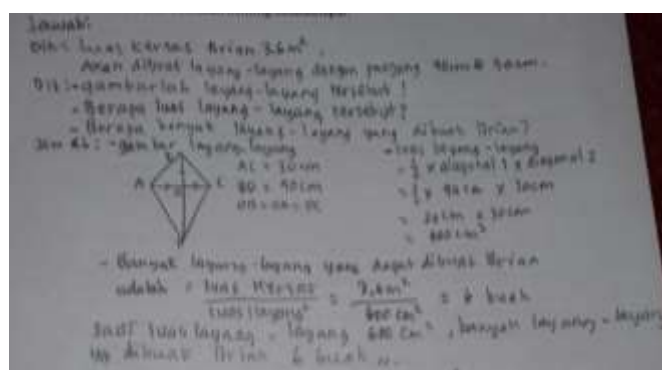 Jawab:
Dik: luas kertas Brian 3,6 m².
Akan dibuat layang-layang dengan panjang 40cm & 30cm.
Dit: - gambarlah layang-layang tersebut!
- Berapa luas layang-layang tersebut?
- Berapa banyak layang-layang yang dibuat Brian?
Jawab: - gambar layang-layang
A C
AC = 30cm
BD = 40cm
- luas layang-layang
= 1/2 x diagonal 1 x diagonal 2
= 1/2 x 40cm x 30cm
= 20cm x 30cm
= 600 cm²
- Banyak layang-layang yang dapat dibuat Brian
adalah = luas kertas / luas layang² = 3,6m² / 600 cm² = 6 buah
Jadi luas layang-layang 600 cm², banyak layang-layang
yg dibuat Brian 6 buah